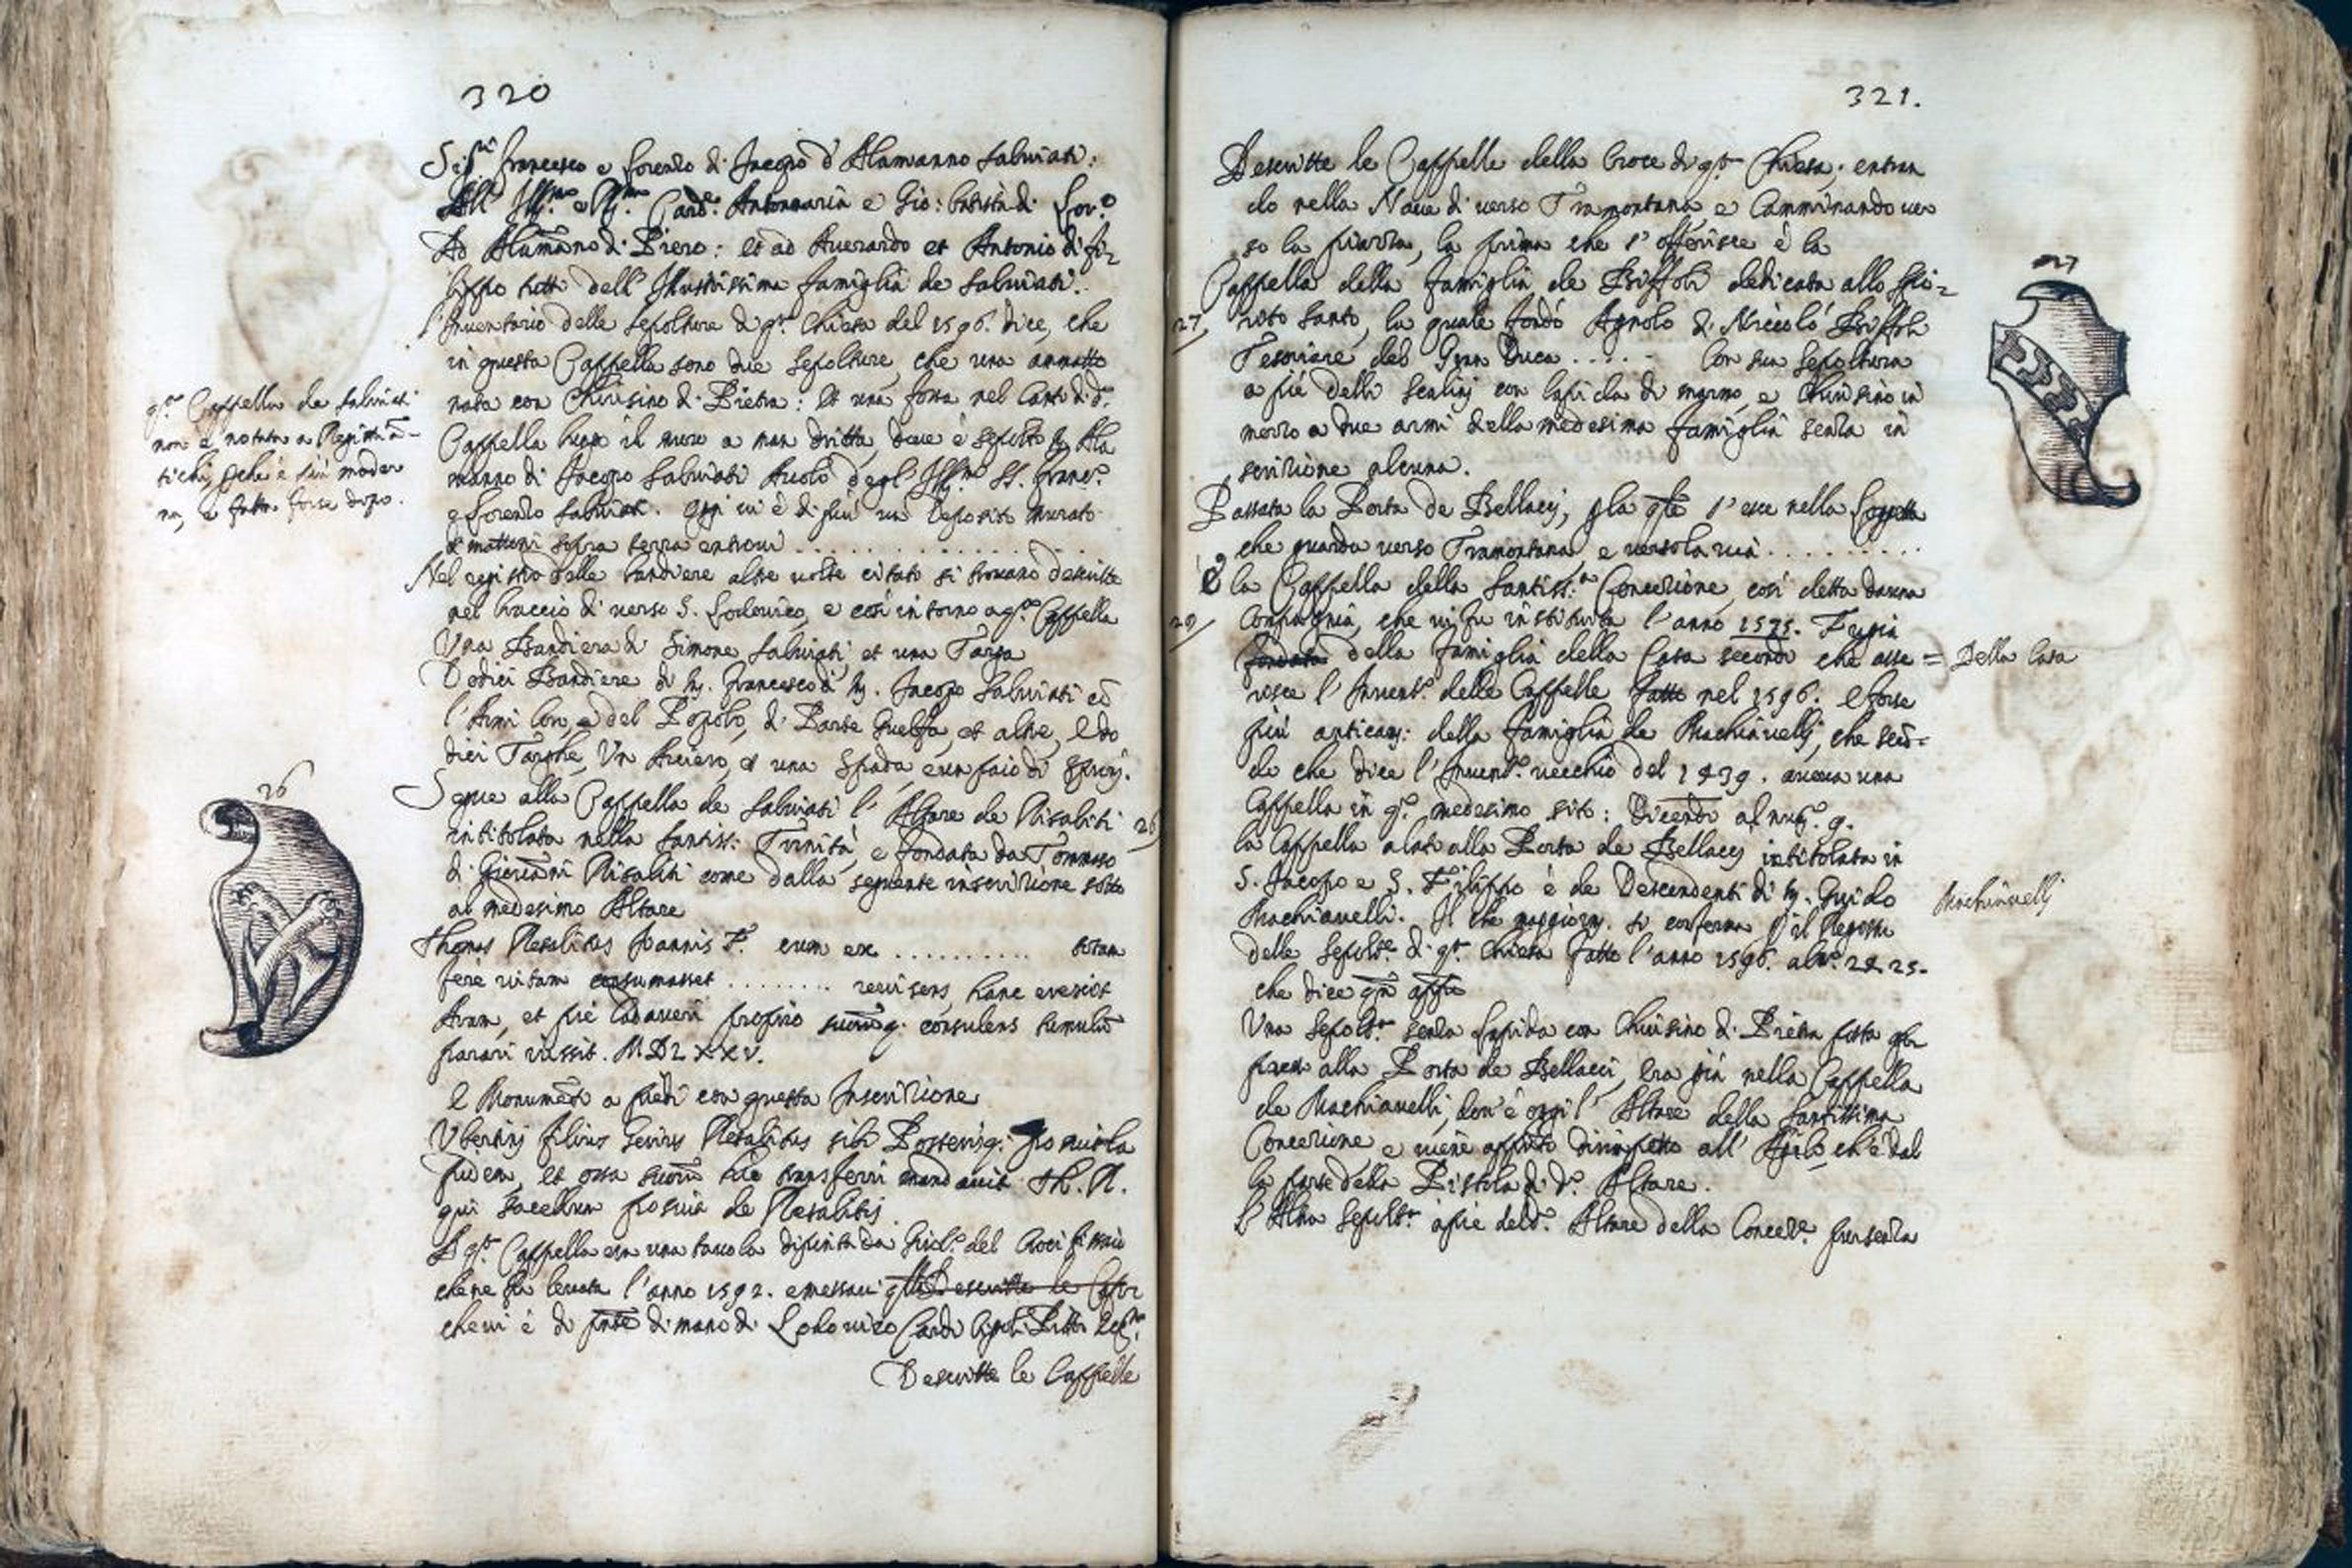 320
Sig.ri Francesco e Lorenzo di Jacopo d'Alamanno Salviati:
All' Ill.mo e R.mo Card.e Antonmaria e Gio: Batista di Lor.o
Ad Alamano di Piero: et ad Averardo et Antonio di Fi-
lippo tutti dell' Illustrissima famiglia de Salviati.
l'Inventario delle sepolture di q.ta Chiesa del 1596. dice, che
in questa Cappella sono due sepolture, che una ammatto
nata con Chiusino di Pietra: et una fossa nel Canto di d.a
Cappella lungo il muro a man dritta, dove è sepolto M. Ala
manno di Jacopo Salviati Avolo degl' Ill.mi SS. Franc.o
e Lorenzo Salviati. Oggi vi è di più un Deposito murato
di mattoni sopra terra entrovi . . . . . . . . . .
q.ta Cappella de Salviati
non è notata a Registri an-
tichi, perche è più moder
na, e fatta forse dopo.
Nel registro delle bandiere altre volte citato si trovano descritte
nel braccio di verso S. Lodovico, e così intorno a q.ta Cappella
Una Bandiera di Simone Salviati, et una Targa
Dodici Bandiere di M. Francesco di M. Jacopo Salviati cō
l'Armi loro, e del Popolo, di Parte Guelfa, et altre, e do
dici Targhe, Un Cimiero, et una Spada, e un paio di Sproni.
26
Segue alla Cappella de Salviati l'Altare de Risaliti 26
intitolata nella Santiss: Trinità, e fondata da Tommaso
di Giovāni Risaliti come dalla seguente inscrizione sotto
al medesimo Altare
Thomas Resalitus Joannis F. cum ex . . . . . . . . . . totam
fere vitam consumasset . . . . . . . . hanc erexit
Aram, et pie Cadaveri proprio suorūq. consulens tumulū
parari iussit. MDLXXV.
E Monumēto a piedi con questa Inscrizione
Ubertinus filius Gerius Resalitus sibi Posterisq: posuit
et ossa suorū huc transferri mandavit Th. R.
qui sacellum posuit de Resalitis
A q.ta Cappella era una tavola dipinta da del Crocifissaio
che ne fu levata l'anno 1592. e messavi quella Descritte le Capp
che vi è di p̄nte di mano di Lodovico Cardi Cigoli Pittor Ecc.te
Descritte le Cappelle
321.
Descritte le Cappelle della Croce di q.ta Chiesa; entran
do nella Nave di verso Tramontana, e Camminando ver
so la piazza, la prima che s'offerisce è la
Cappella della famiglia de Biffoli dedicata allo Spi-
27
27, rito Santo, la quale fondò Agnolo di Niccolò Biffoli
Tesoriere del Gran Duca . . . . . Con sua sepoltura
a piè delli scalini con lapida di marmo, e Chiusino in
mezzo a due armi della medesima famiglia senza in
scrizione alcuna.
Passata la Porta de Bellacci, p la q̄le s'esce nella Loggetta
che guarda verso Tramontana, e verso la via . . . . . . . . .
È la Cappella della Santiss.a Concezione, così detta da una
Compagnia, che vi fu instituita l'anno 1575. Fu già
fondata della famiglia della Casa secondo che asse = Della Casa
risce l'Invent.o delle Cappelle fatto nel 1596. E forse
più anticam: della famiglia de Machiavelli, che secō-
do che dice l'Invent.o vecchio del 1439. aveva una
Cappella in q.o medesimo sito: Dicendo al num.o 9.
la Cappella alato alla Porta de Bellacci intitolata in
S. Jacopo e S. Filippo è de Descendenti di M. Guido
Machiavelli
Machiavelli. Il che maggiorm. si conferma p il Registro
delle Sepolt.e di q.ta Chiesa fatto l'anno 1596. al n.o 24. 25.
che dice
Una Sepolt.a senza Lapida con Chiusino di Pietra posta
presso alla Porta de Bellacci, era già nella Cappella
de Machiavelli, dov'è oggi l'Altare della Santissima
Concezione e viene appunto dirimpetto all' ch'è dal
la parte della Pistola di d.o Altare.
L'Altra Sepolt.a a piè del d.o Altare della Concez.e pur senza